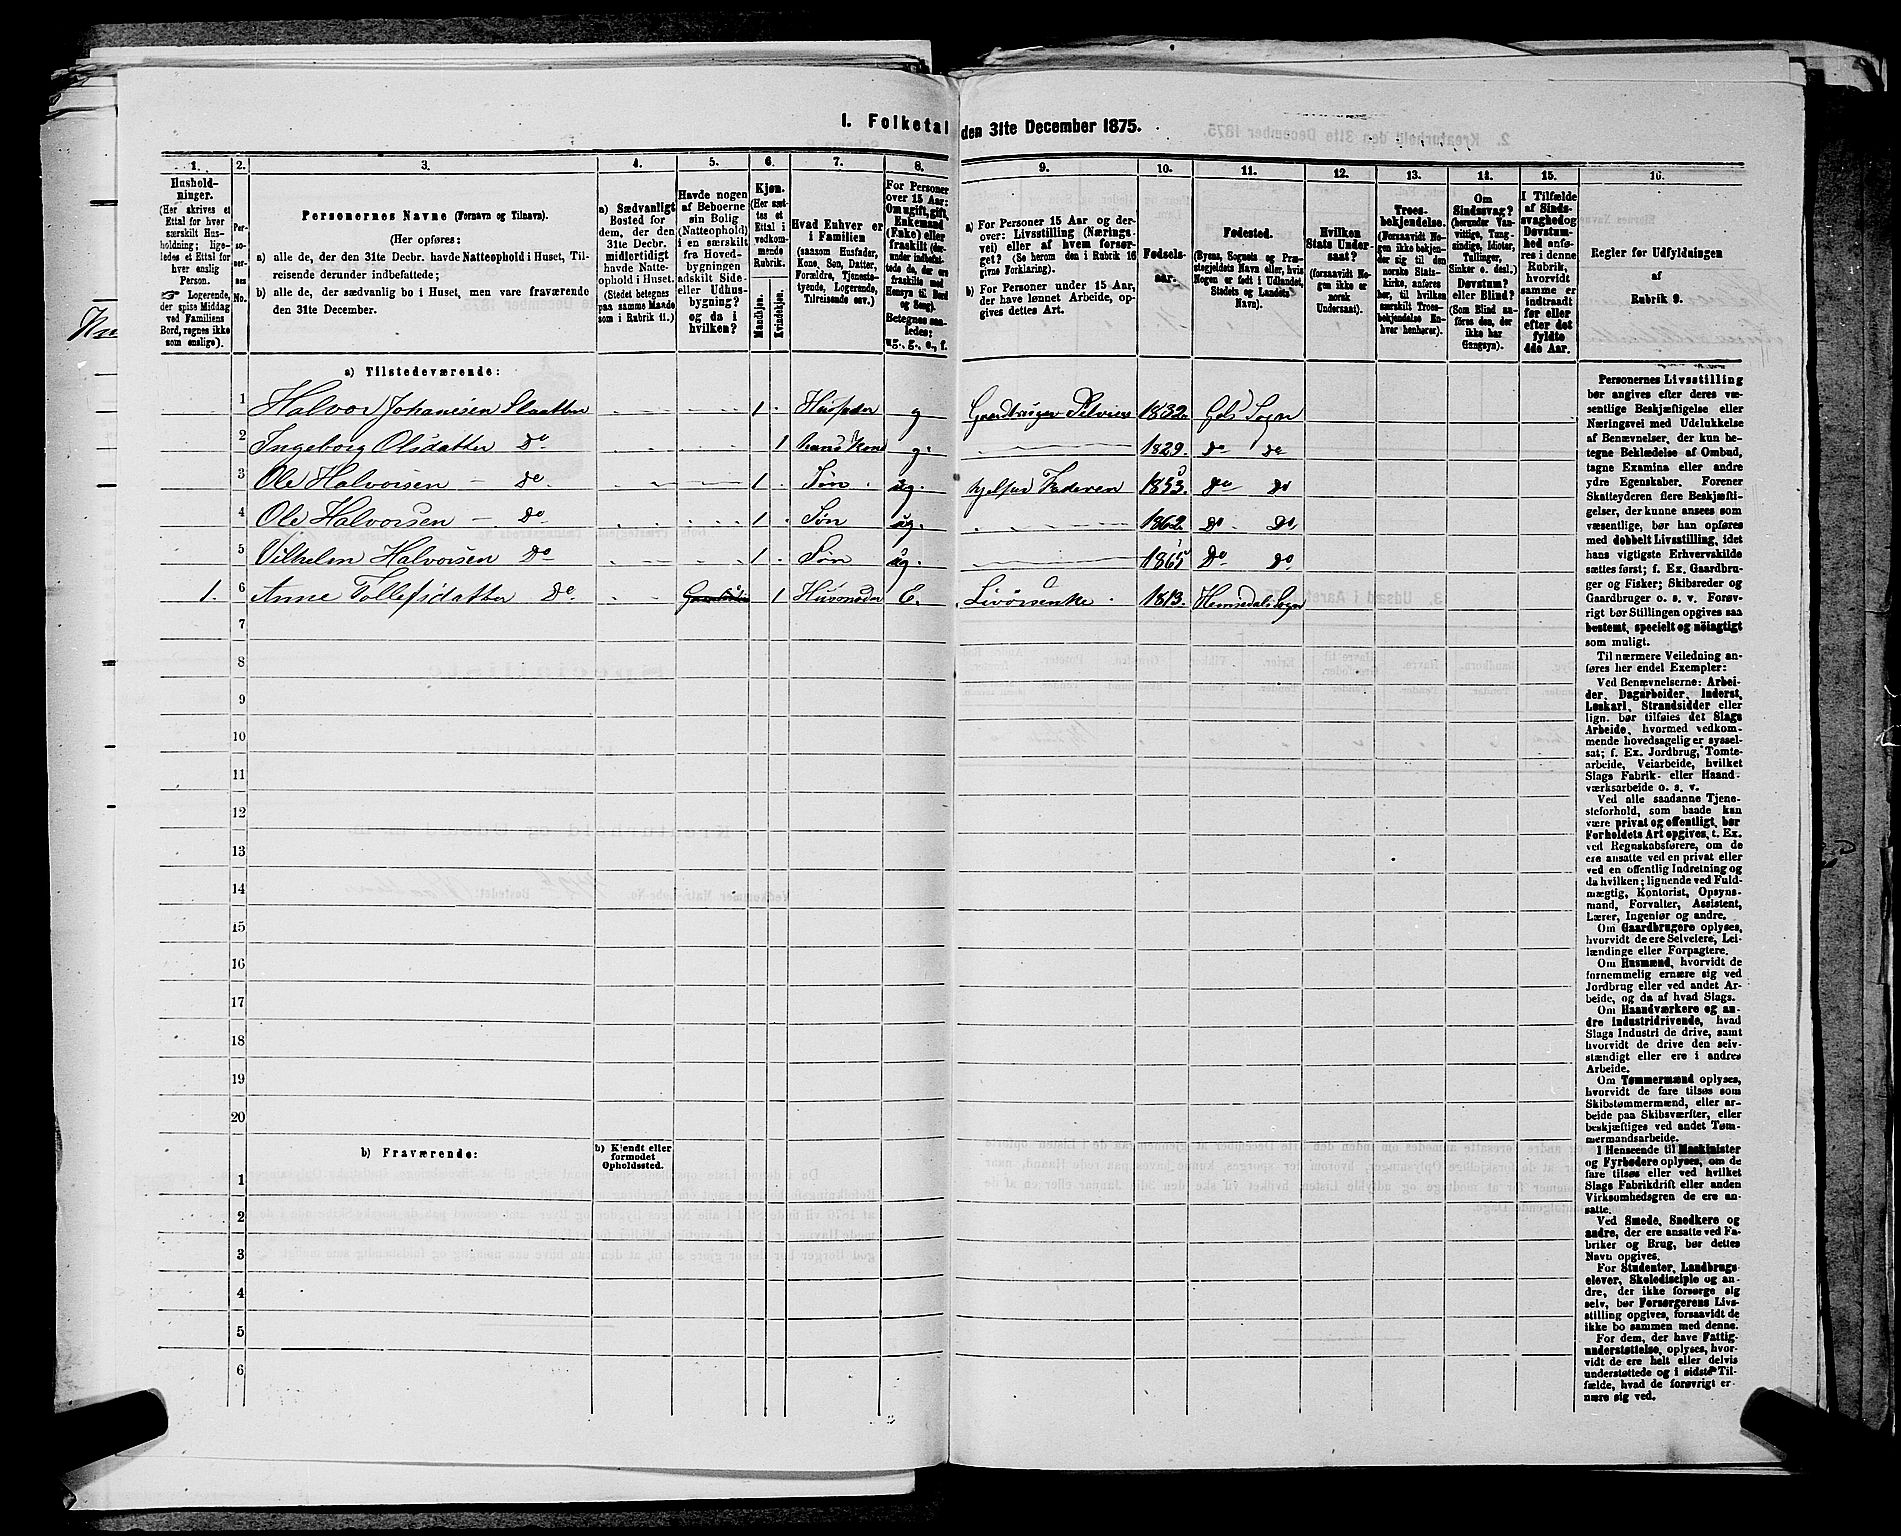 I. Folketal den 31te December 1875.
1. 2. 3. 4. 5. 6. 7. 8. 9. 10. 11. 12. 13. 14. 15. 16.
Hushold-
ninger.
(Her skrives et
Ettal for hver
særskilt Hus-
holdning; lige-
ledes et Ettal for
hver enslig
Person.
☞ Logerende,
der spise Middag
ved Familiens
Bord, regnes ikke
som enslige).
Per-
so-
ner-
nes
No.
Personernes Navne (Fornavn og Tilnavn).
(Her opføres:
a) alle de, der den 31te Decbr. havde Natteophold i Huset, Til-
reisende derunder indbefattede;
b) alle de, der sædvanlig bo i Huset, men vare fraværende
den 31te December.
a) Sædvanligt
Bosted for
dem, der den
31te Decbr.
midlertidigt
havde Natte-
ophold i Huset.
(Stedet betegnes
paa samme Maade
som i Rubrik 11.)
Havde nogen
af Beboerne
sin Bolig
(Natteophold)
i en særskilt
fra Hoved-
bygningen
adskilt Side-
eller Udhus-
bygning?
og da i
hvilken?
Kjøn.
(Her sæt-
tes et
Ettal i
vedkom-
mende
Rubrik.
Mandkjøn.
Kvindekjøn.
Hvad Enhver er
i Familien
(saasom Husfader,
Kone, Søn, Datter,
Forældre, Tjeneste-
tyende, Logerende,
Tilreisende osv.)
For Personer
over 15 Aar:
Om ugift, gift,
Enkemand
(Enke) eller
fraskilt (der-
under indbefat-
tede de, der ere
fraskilte med
Hensyn til Bord
og Seng).
Betegnes saa-
ledes:
ug., g., e., f.
a) For Personer 15 Aar og der-
over: Livsstilling (Nærings-
vei) eller af hvem forsør-
get? (Se herom den i Rubrik 16
givne Forklaring).
b) For Personer under 15 Aar,
der have lønnet Arbeide, op-
gives dettes Art.
Fødsels-
aar.
Fødested.
(Byens, Sognets og Præ-
stegjeldets Navn eller, hvis
Nogen er født i Udlandet,
Stedets og Landets
Navn).
Hvilken
Stats Under-
saat?
(forsaavidt No-
gen ikke er
norsk
Undersaat).
Troes-
bekjendelse.
(Forsaavidt No-
gen ikke bekjen-
der sig til den
norske Stats-
kirke, anføres
her, til hvilken
særskilt Troes-
bekjendelse En-
hver henhører).
Om
Sindssvag?
(herunder Van-
vittige, Tung-
sindige, Idioter,
Tullinger,
Sinker o. desl.)
Døvstum?
eller Blind?
(Som Blind an-
føres den, der
ikke har
Gangsyn).
I Tilfælde
af Sinds-
svaghed og
Døvstum-
hed anfø-
res i denne
Rubrik,
hvorvidt
samme er
indtraadt
før eller
efter det
fyldte
4de Aar.
Regler for Udfyldningen
af
Rubrik 9.
a) Tilstedeværende:
1 Halvor Johanesen Slaatten 1 Husfader g Gaardbruger Selveier 1832. Gols Sogn
2 Ingeborg Olsdatter Do 1 hans Kone g. 1829. Do Do
3 Ole Halvorsen Do 1 Søn ug. hjelper Faderen 1853. Do Do
4 Ole Halvorsen Do 1 Søn ug. 1862. Do Do
5 Vilhelm Halvorsen Do 1 Søn ug. 1865 Do Do
1. 6 Anne Tollefsdatter Do. 1 Husmoder E. Livørsenke 1813. Hemsedals Sogn
7
8
9
10
11
12
13
14
15
16
17
18
19
20
b) Fraværende:
b) Kjendt eller
formodet
Opholdssted.
1
2
3
4
5
6
Personernes Livsstilling
bør angives efter deres væ-
sentlige Beskjæftigelse eller
Næringsvei med Udelukkelse
af Benævnelser, der kun be-
tegne Beklædelse af Ombud,
tagne Examina eller andre
ydre Egenskaber. Forener
Skatteyderen flere Beskjæfti-
gelser, der kunne ansees som
væsentlige, bør han opføres
med dobbelt Livsstilling, idet
hans vigtigste Erhvervskilde
sættes først; f. Ex. Gaardbru-
ger og Fisker; Skibsreder og
Gaardbruger o. s. v. Forøv-
rigt bør Stillingen opgives saa
bestemt, specielt og nøiagtigt
som muligt.
Til nærmere Veiledning an-
føres her endel Exempler:
Ved Benævnelserne: Arbei-
der, Dagarbeider, Inderst,
Løskarl, Strandsidder eller
lign. bør tilføies det Slags
Arbeide, hvormed vedkom-
mende hovedsagelig er syssel-
sat; f. Ex. Jordbrug, Tomte-
arbeide, Veiarbeide, hvilket
Slags Fabrik- eller Haand-
værksarbeide o. s. v.
Ved alle saadanne Tjene-
steforhold, som baade kan
være privat og offentligt, bør
Forholdets Art opgives, t. Ex.
ved Regnskabsførere, om de
ere ansatte ved en privat eller
ved en offentlig Indretning og
da hvilken; lignende ved Fuld-
mægtig, Kontorist, Opsyns-
mand, Forvalter, Assistent,
Lærer, Ingeniør og andre.
Om Gaardbrugere oplyses,
hvorvidt de ere Selveiere, Lei-
lændinge eller Forpagtere.
Om Husmænd, hvorvidt de
fornemmelig ernære sig ved
Jordbrug eller ved andet Ar-
beide, og da af hvad Slags.
Om Haandværkere og an-
dre Industridrivende, hvad
Slags Industri de drive, samt
hvorvidt de drive den selv-
stændigt eller ere i andres
Arbeide.
Om Tømmermænd oplyses,
hvorvidt de fare tilsøs som
Skibstømmermænd, eller ar-
beide paa Skibsværfter, eller
beskjæftiges ved andet Tøm-
mermandsarbeide.
I Henseende til Maskinister
og Fyrbødere oplyses, om de
fare tilsøs eller ved hvilket
Slags Fabrikdrift eller anden
Virksomhedsgren de ere an-
satte.
Ved Smede, Snedkere og
andre, der ere ansatte ved Fa-
briker og Brug, bør dettes
Navn opgives.
For Studenter, Landbrugs-
elever, Skoledisciple og an-
dre, der ikke forsørge sig
selv, bør Forsørgerens Livs-
stilling opgives, forsaavidt de
ikke bo sammen med denne.
For dem, der have Fattig-
understøttelse, oplyses, hvor-
vidt de ere helt eller delvis
understøttede og i sidste Til-
fælde, hvad de forøvrigt er-
nære sig ved.